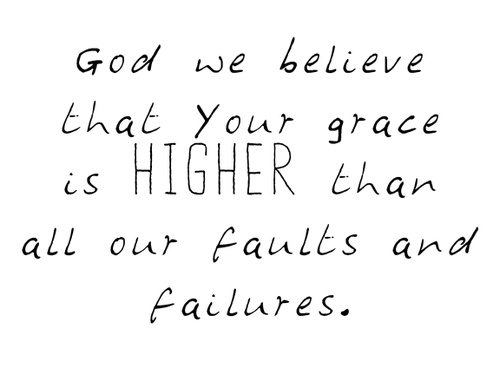 God we believe
that Your grace
is HIGHER than
all our faults and
failures.